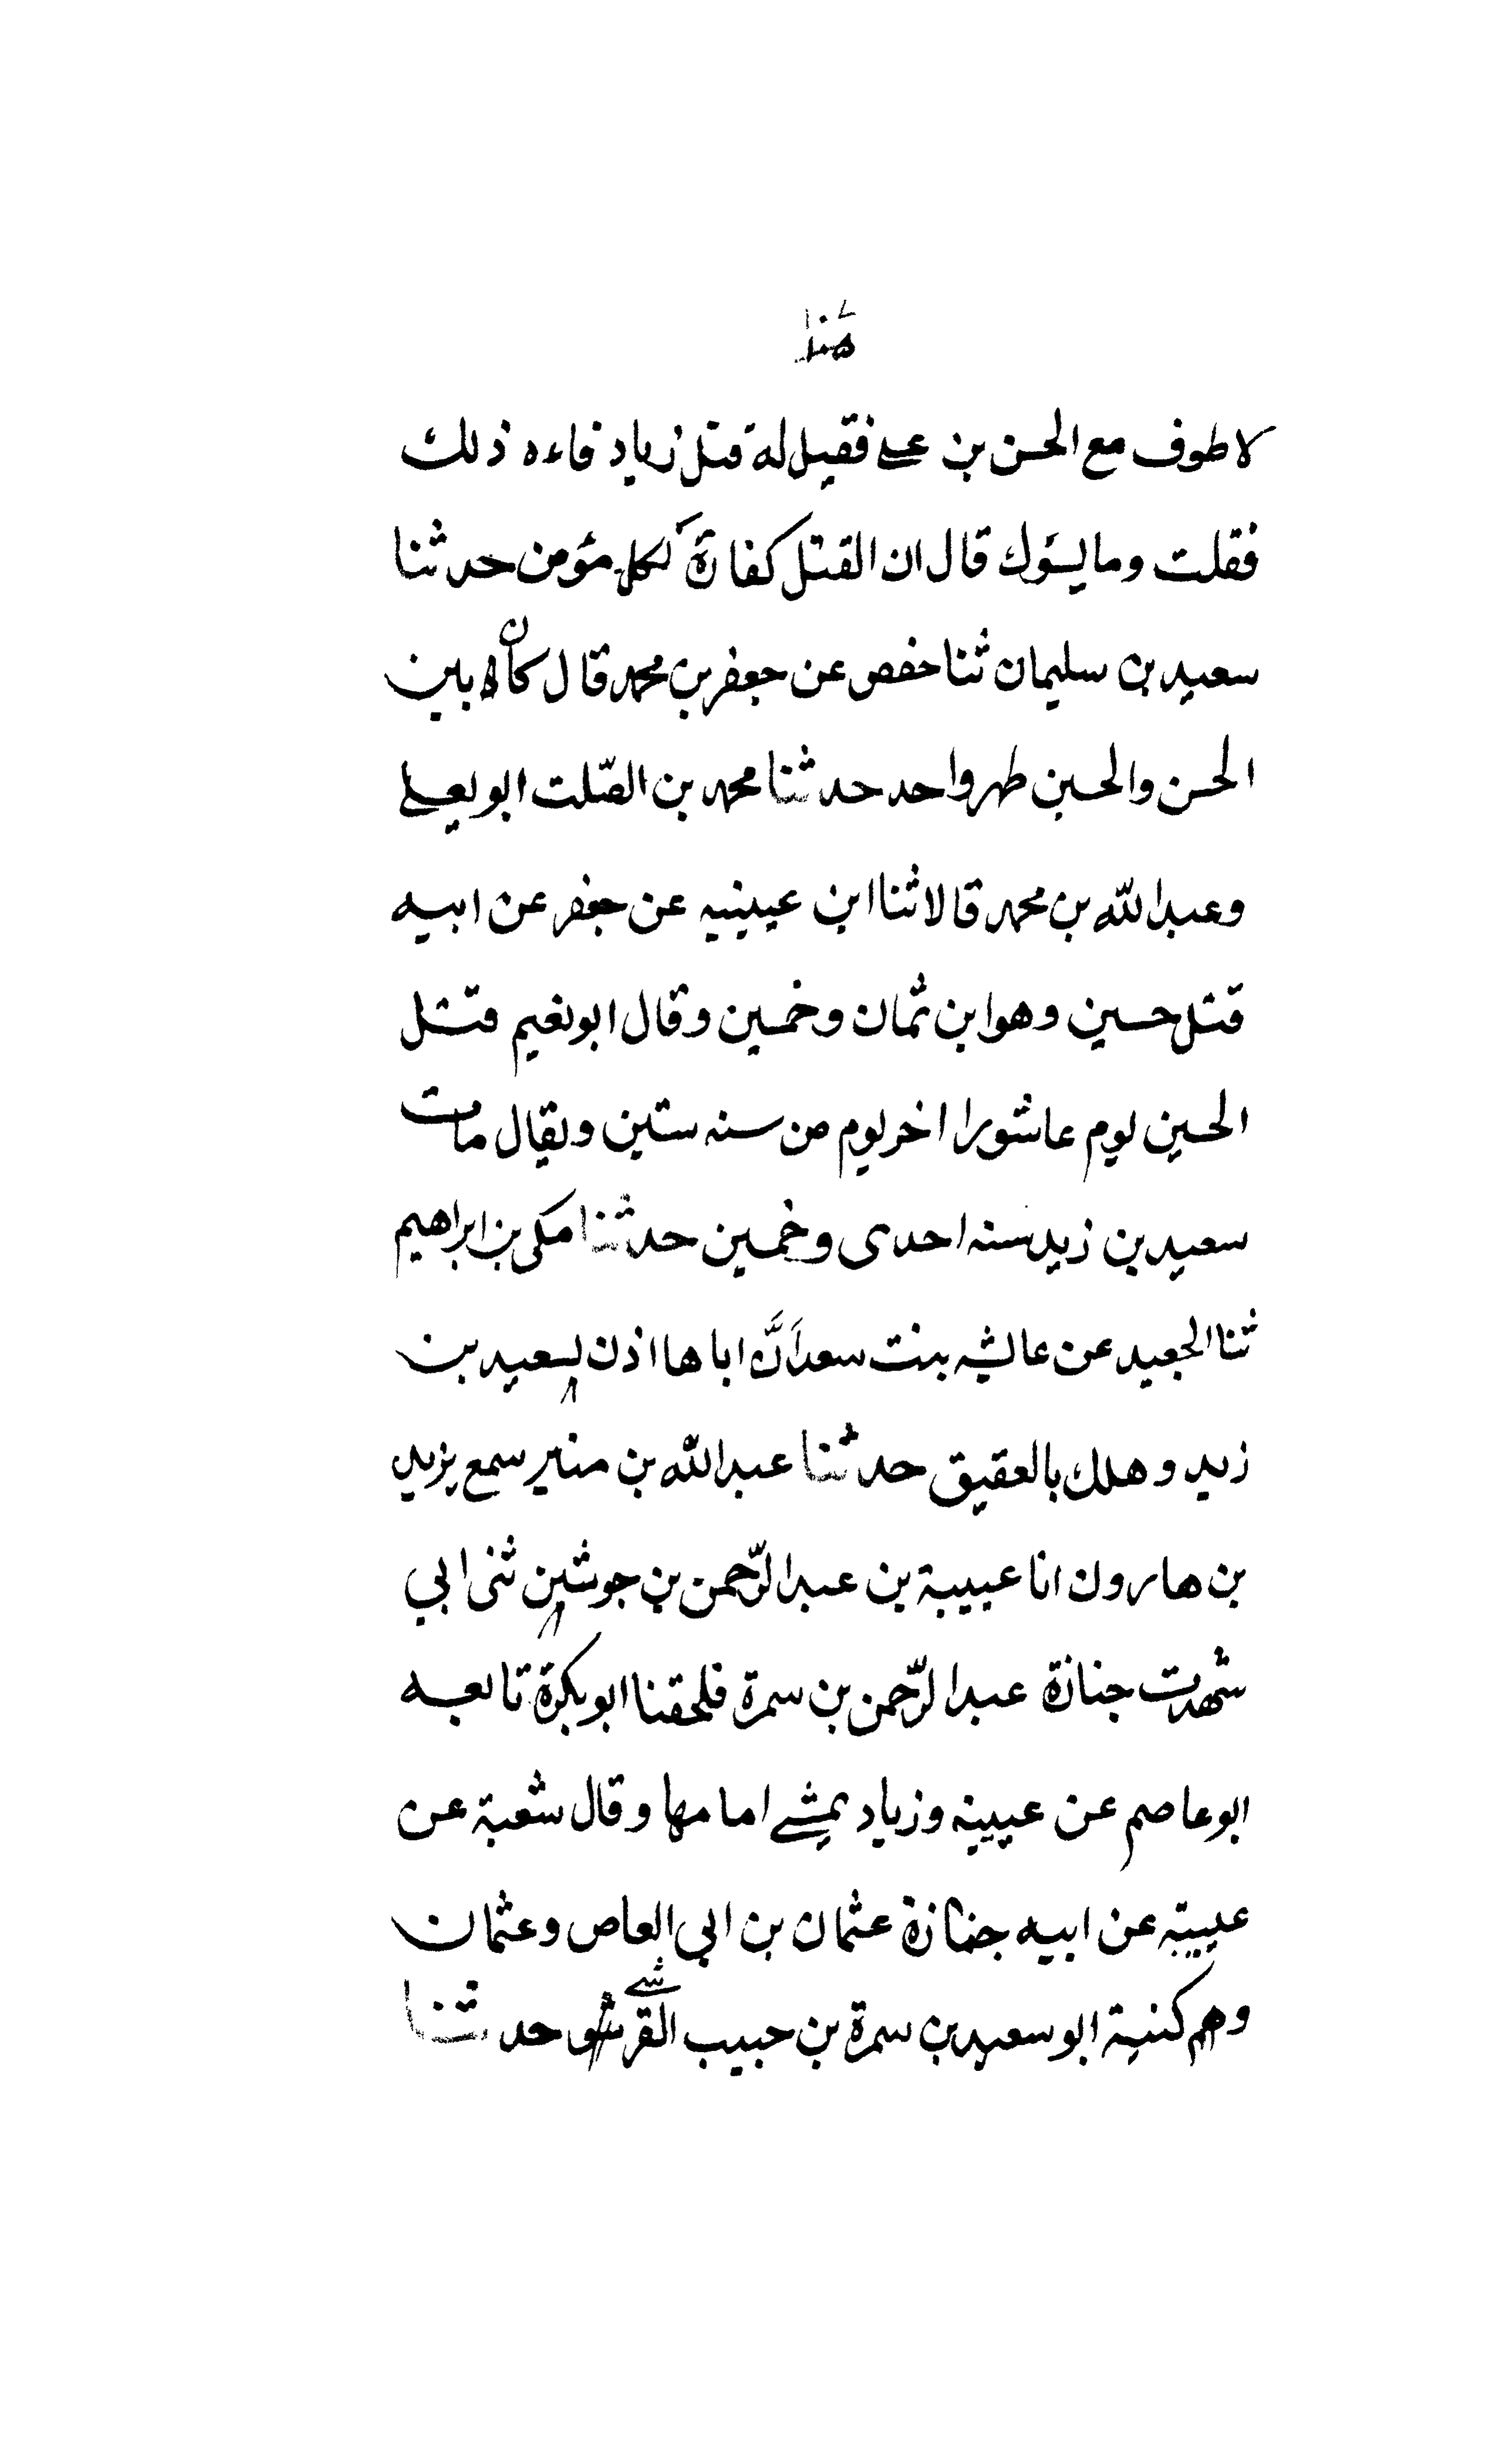 هذا
لاطوف مع الحسن بن علے فقيل له قتل زياد فاءه ذلك
فقلت وما يسؤك قال ان القتل كفارة لكل مؤمن حدثنا
سعيد بن سليمان ثنا حفص عن جعفر بن محمد قال كان بين
الحسن والحسين طهر واحد حدثنا محمد بن الصّلت ابو يعلے
وعبد اللّٰه بن محمد قالا ثنا ابن عيينيه عن جعفر عن ابيه
قتل حسين وهو ابن ثمان وخمسين وقال ابو نعيم قتل
الحسين يوم عاشورا اخر يوم من سنه ستين ويقال مات
سعيد بن زيد سنه احدى وخمسين حدثنا مكى بن ابراهيم
ثنا الجعيد عن عائشه بنت سعد اَنَّ اباها اذن لسعيد بن
زيد وهلك بالعقيق حدثنا عبد اللّٰه بن منير سمع يزيد
بن هارون انا عيينة بن عبد الرّحمن بن جوشن ثنى ابي
شهدت جنازة عبد الرّحمن بن سمرة فلحقنا ابو بكرة تابعه
ابو عاصم عن عيينه وزياد يمشے امامها وقال شعبة عن
عيينة عن ابيه جنازة عثمان بن ابي العاص وعثمان
وهم كنية ابو سعيد بن سمرة بن حبيب القرشے حدثنا